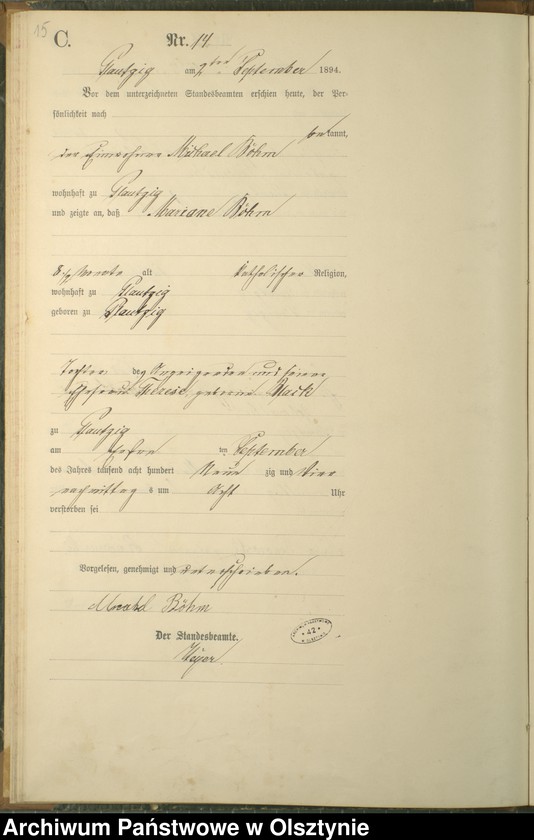 15
C.
Nr. 14
am 2ten September 1894.
Vor dem unterzeichneten Standesbeamten erschien heute, der Per-
sönlichkeit nach
bekannt,
der Einwohner Michael Böhm
wohnhaft zu
und zeigte an, daß Mariane Böhm
Monate alt katholischer Religion,
wohnhaft zu
geboren zu
Tochter des Anzeigenden und seiner
Ehefrau Therese geborene
zu
am ersten September
des Jahres tausend acht hundert Neun zig und vier
nachmittag s um Acht Uhr
verstorben sei
Vorgelesen, genehmigt und unterschrieben.
Böhm
Der Standesbeamte.
42
Archiwum Państwowe w Olsztynie